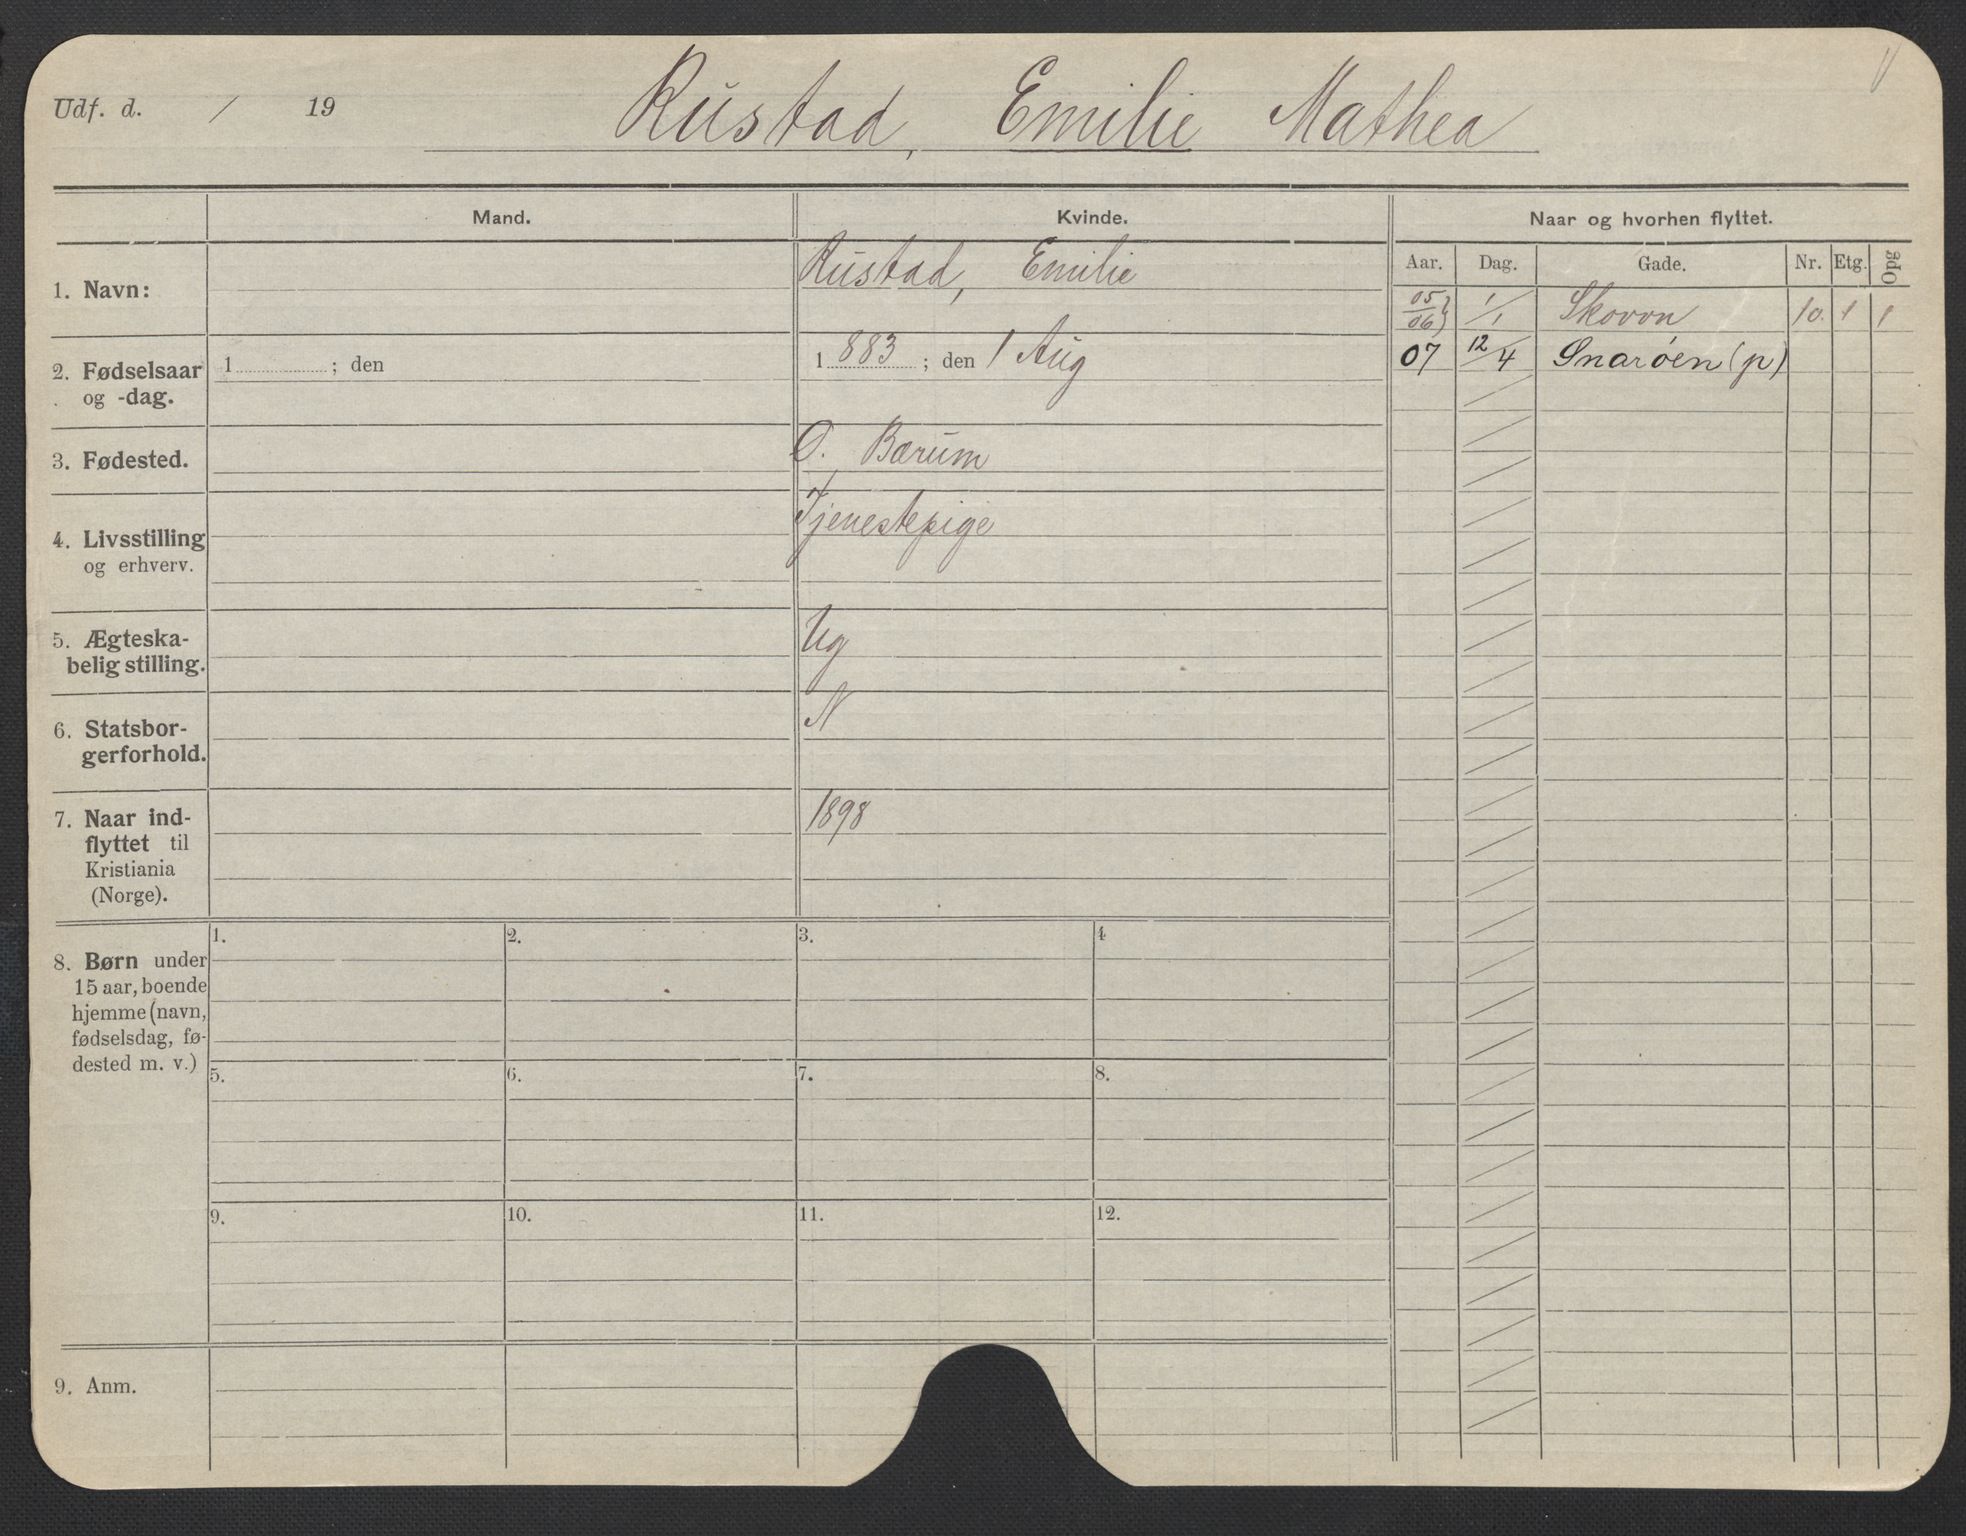 Udf. d. / 19 Rustad, Emilie Mathea
Mand. Kvinde. Naar og hvorhen flyttet.
Aar. Dag. Gade. Nr. Etg. Opg
1. Navn: Rustad, Emilie
05/06} 1/1 Skovvn 10. 1 1
07 12/4 Snarøen (p)
2. Fødselsaar og -dag. 1 ; den 1883 ; den 1 Aug
3. Fødested. Ø. Bærum
4. Livsstilling og erhverv. Tjenestepige
5. Ægteska-
belig stilling. Ug
6. Statsbor-
gerforhold. N
7. Naar ind-
flyttet til
Kristiania
(Norge). 1898
8. Børn under
15 aar, boende
hjemme (navn,
fødselsdag, fø-
dested m. v.)
1. 2. 3. 4
5. 6. 7. 8.
9. 10. 11. 12.
9. Anm.